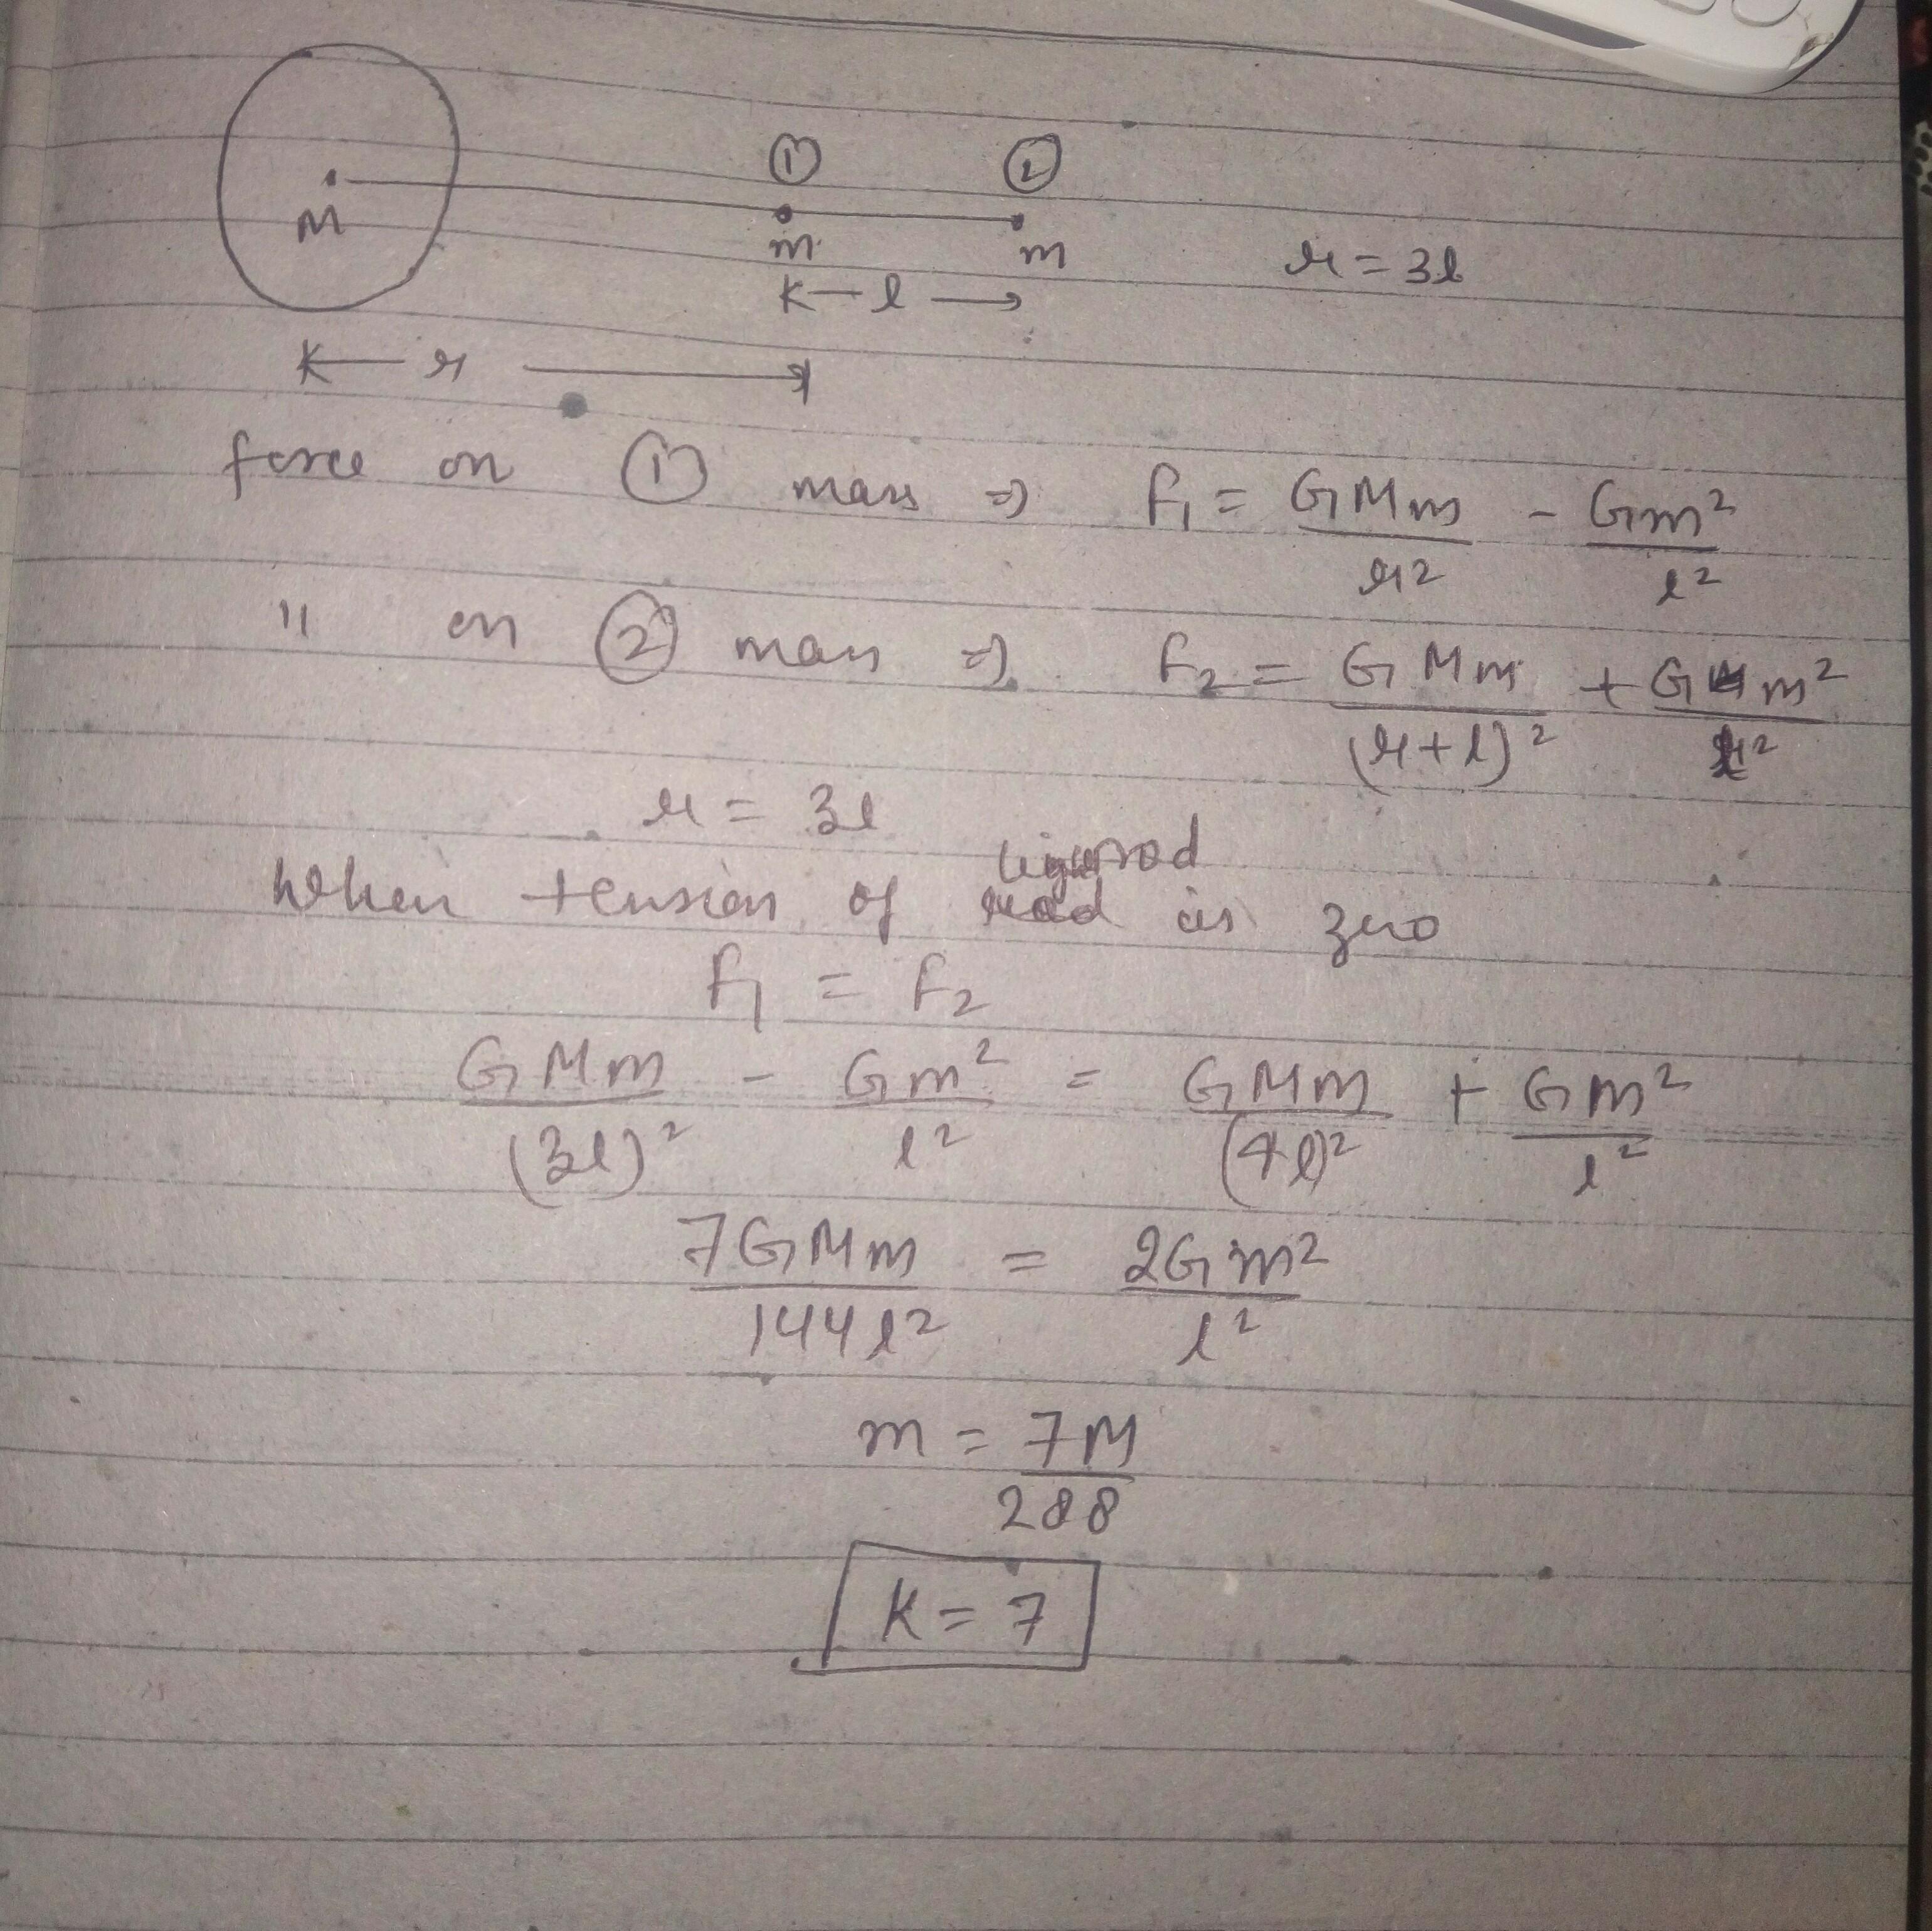 ① ②
M m m r = 3l
K— l →
K— r →
force on ① mass ⇒ F₁ = GMm/r² - Gm²/l²
" on ② mass ⇒ F₂ = GMm/(r+l)² + Gm²/l²
r = 3l
When tension of rod is zero
F₁ = F₂
GMm/(3l)² - Gm²/l² = GMm/(4l)² + Gm²/l²
7GMm/144l² = 2Gm²/l²
m = 7M/288
K = 7